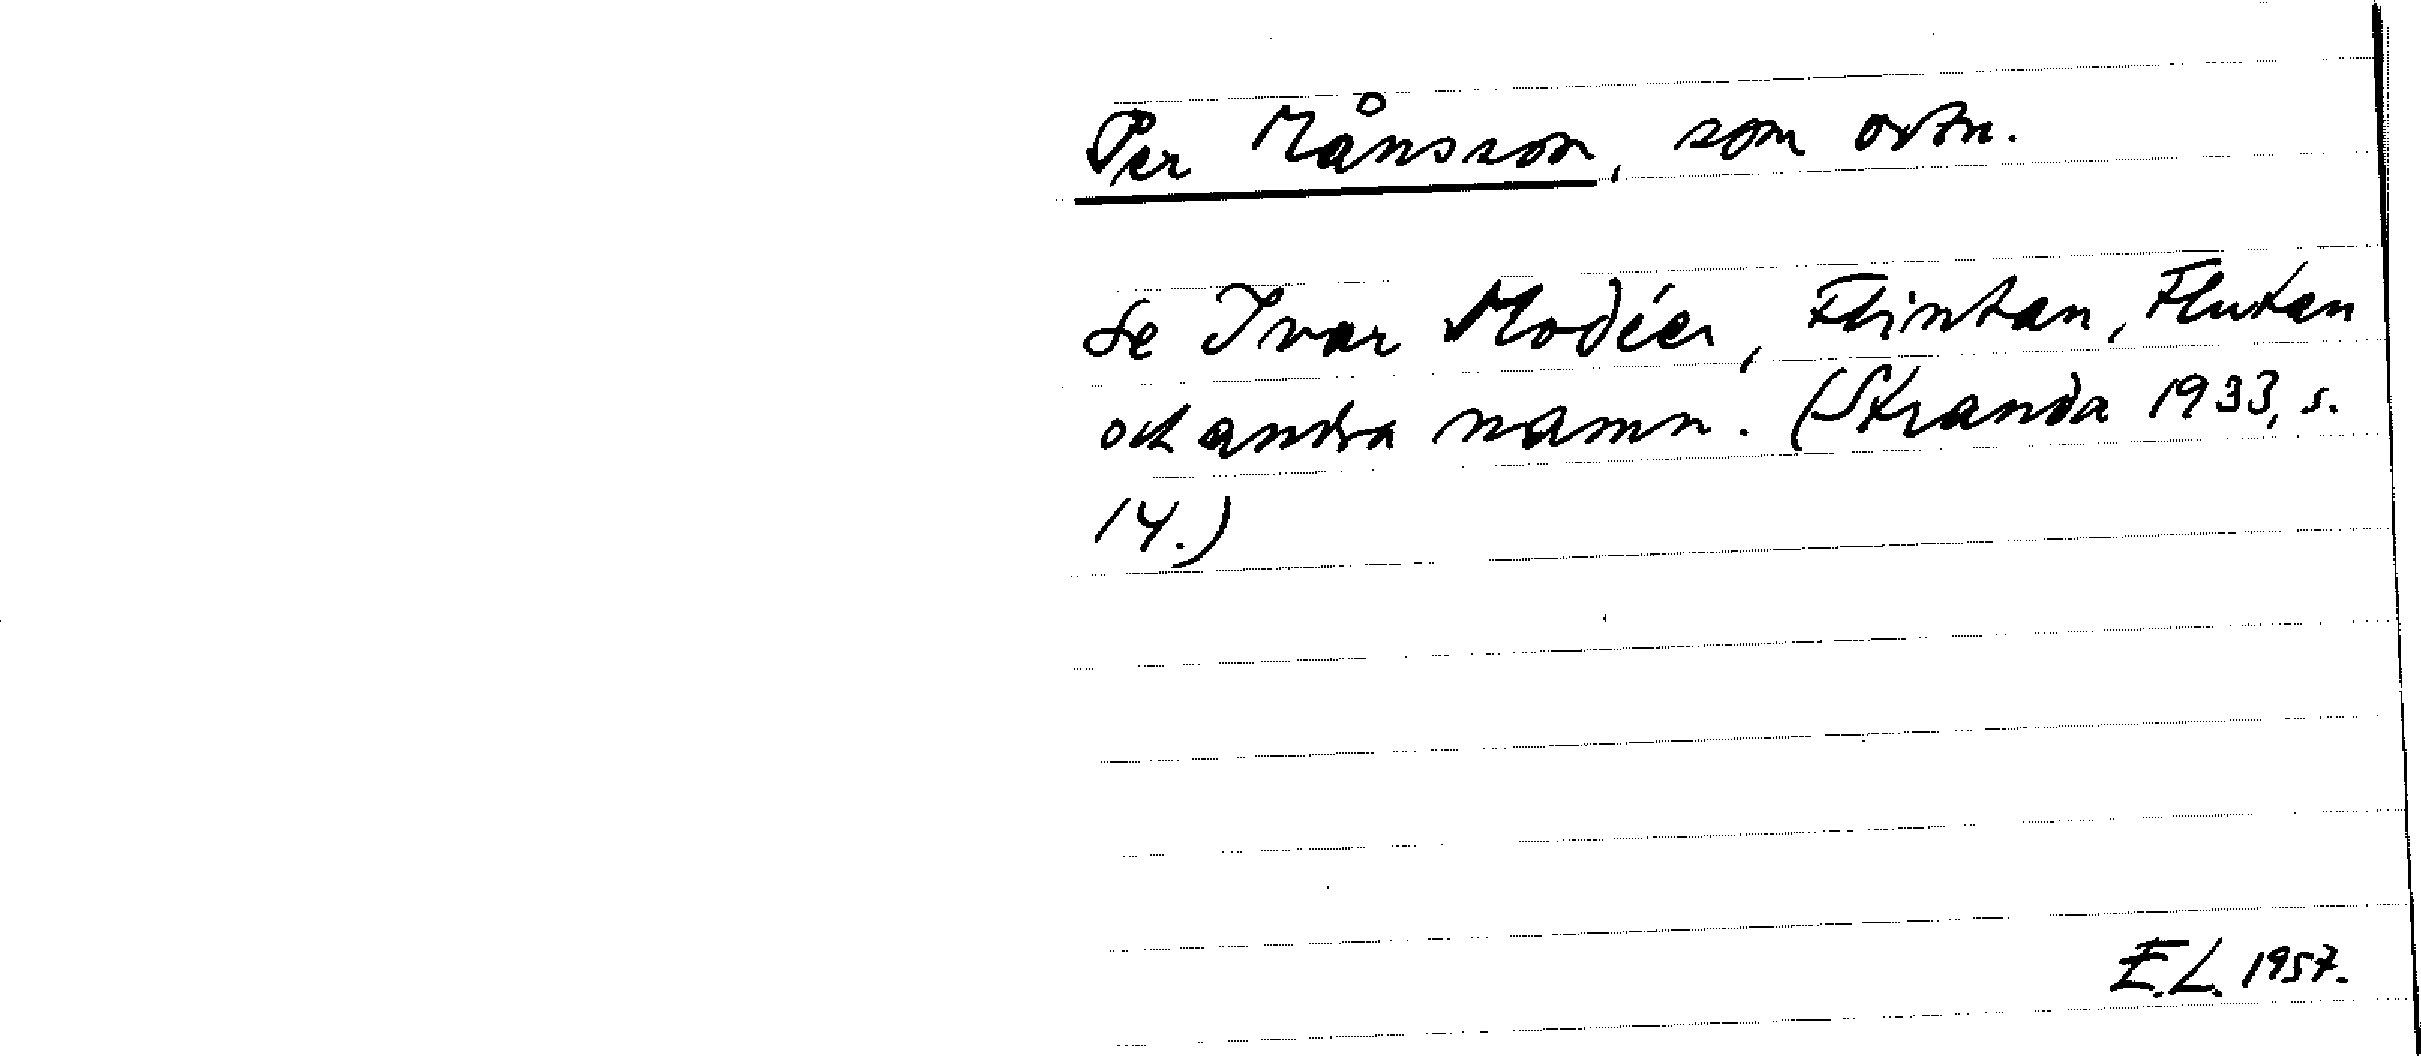 Per Månsson, som ortn.
Se Ivar Modéer, Flintan, Flutan
och andra namn. (Stranda 1933, s.
14.)
E.L. 1957.